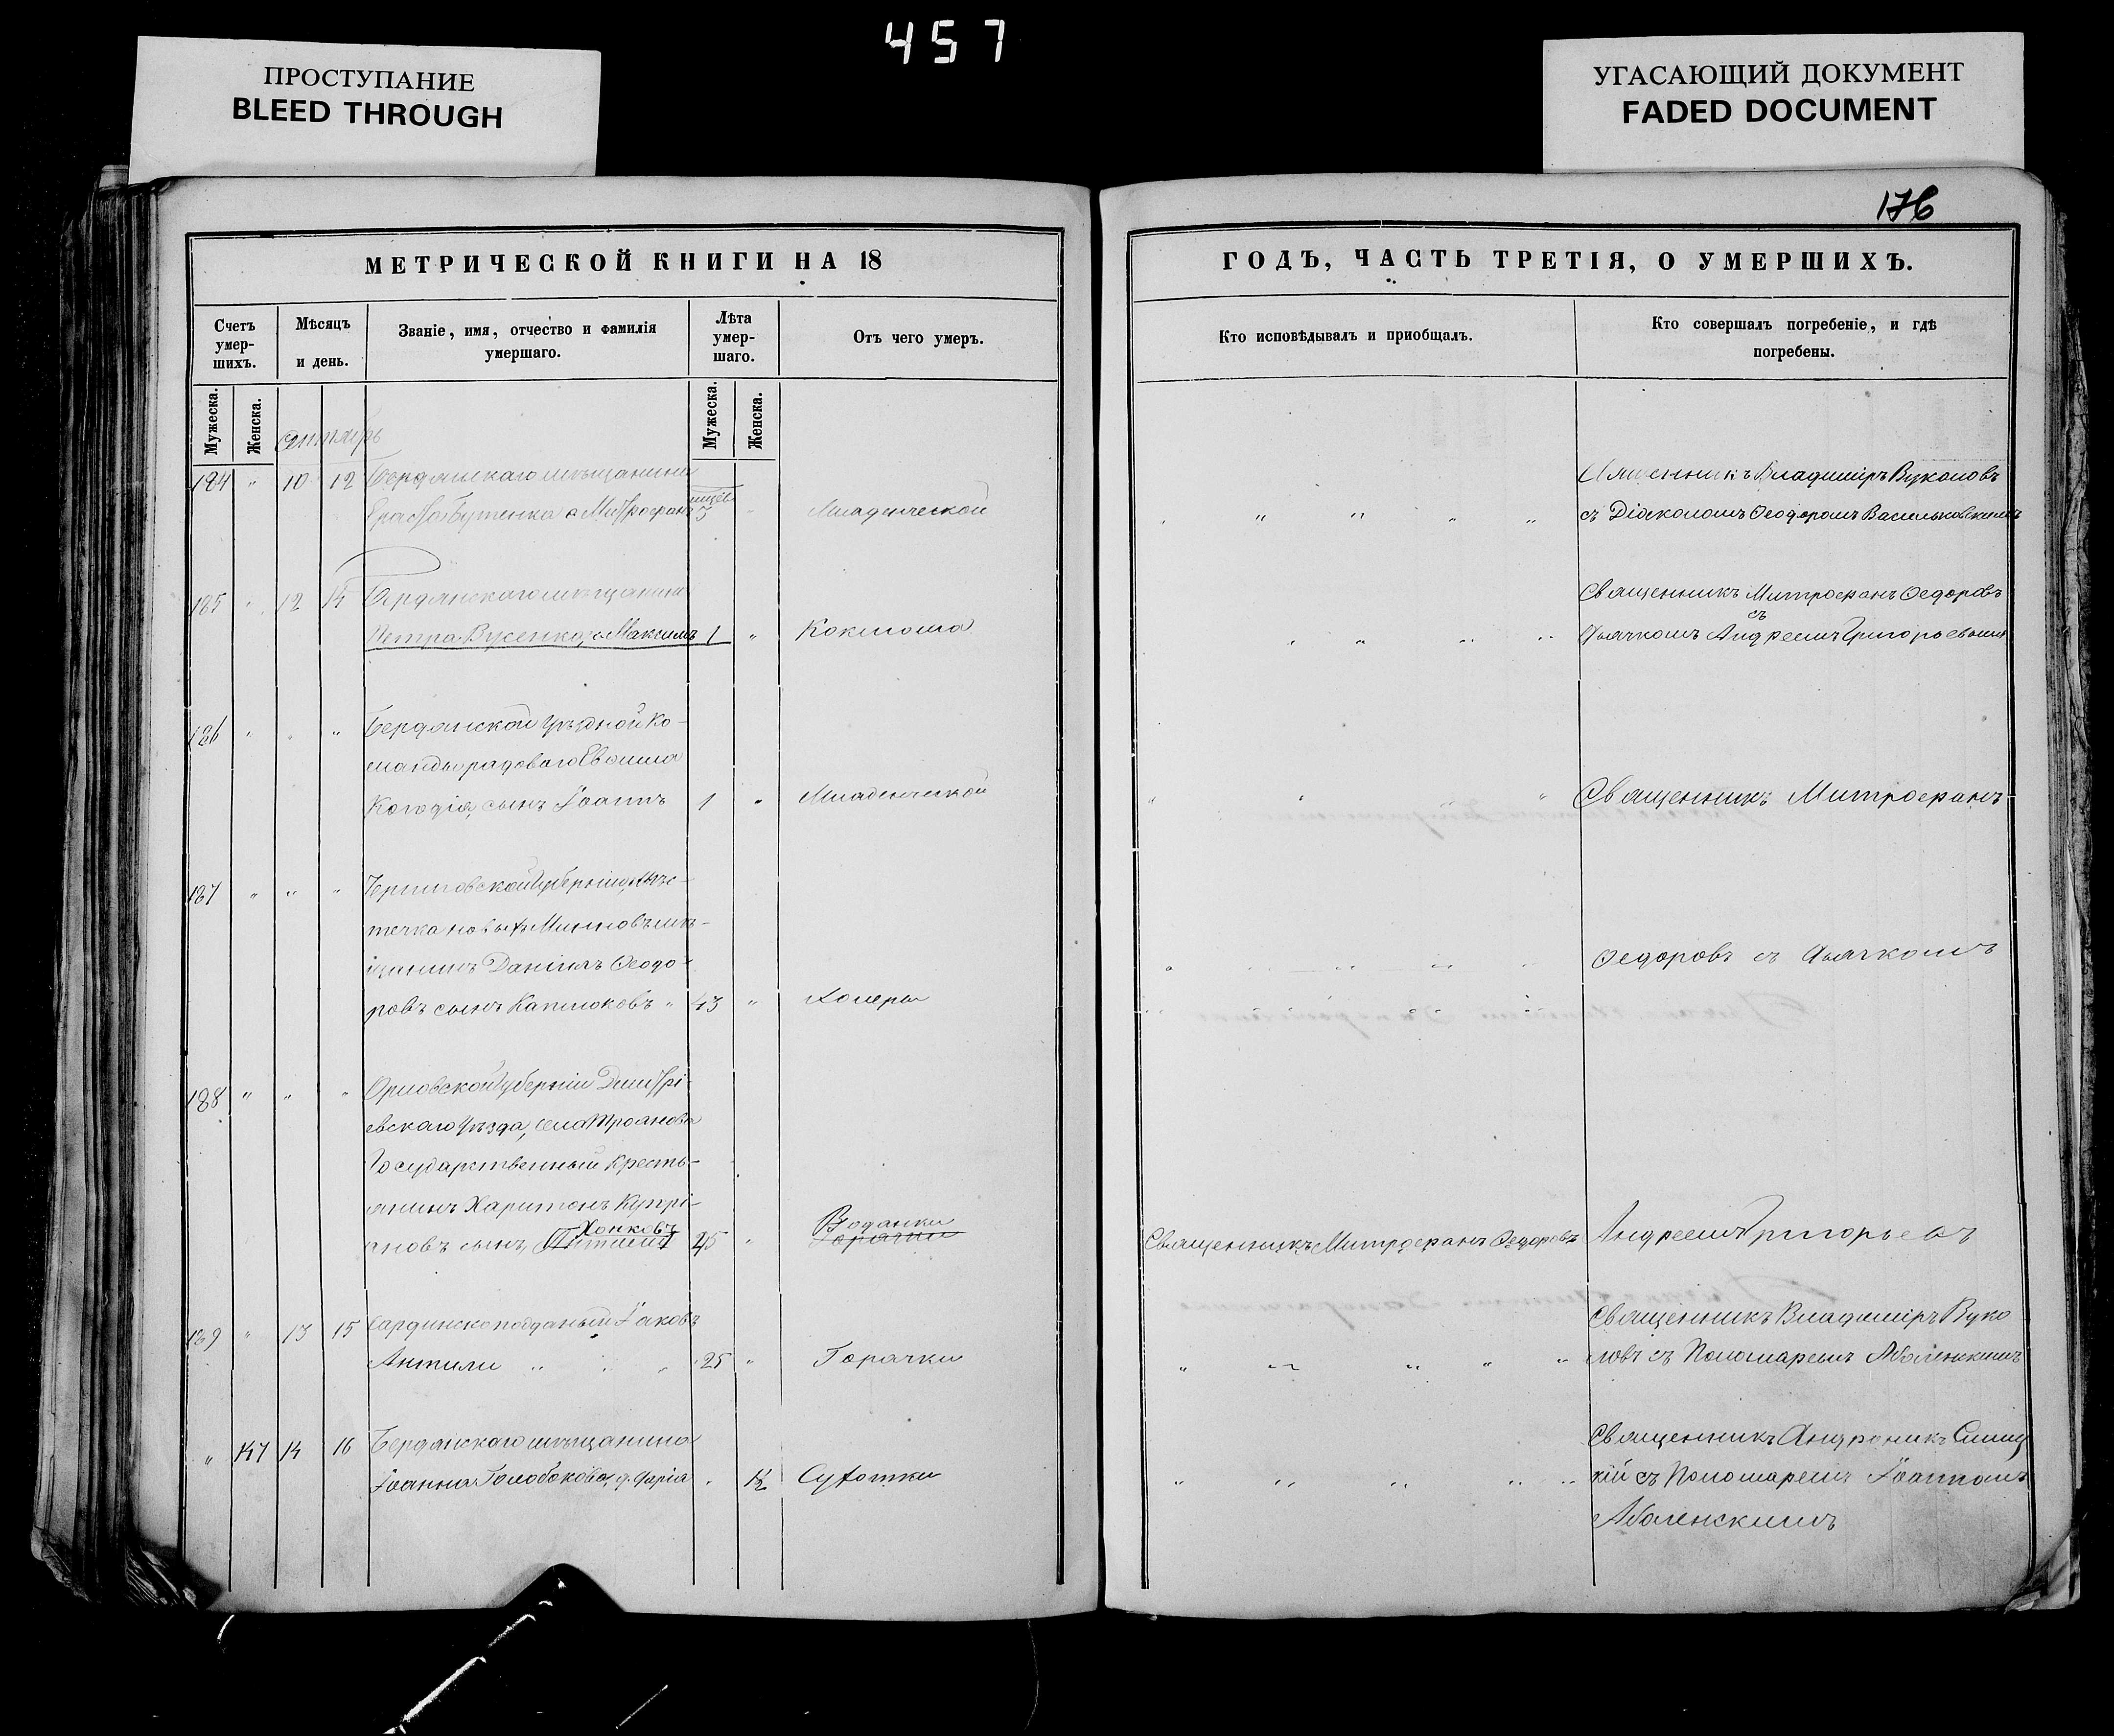 457
ПРОСТУПАНИЕ
BLEED THROUGH
УГАСАЮЩИЙ ДОКУМЕНТ
FADED DOCUMENT
176
МЕТРИЧЕСКОЙ КНИГИ НА 18
ГОДЪ, ЧАСТЬ ТРЕТІЯ, О УМЕРШИХЪ.
Счетъ умер-шихъ.
Мѣсяцъ и день.
Званіе, имя, отчество и фамилія умершаго.
Лѣта умер-шаго.
Отъ чего умеръ.
Кто исповѣдывалъ и приобщалъ.
Кто совершалъ погребеніе, и гдѣ погребены.
Мужеска.
Женска.
Мужеска.
Женска.
184 " 10 12 Бердянскаго мѣщанина
Митрофанъ 3 Младенческой
Священникъ Владиміръ Вуколовъ
съ Діакономъ Ѳеодоромъ Васильковскимъ
185 " 12 14 Бердянскаго мѣщанина
Петра Вусенко, с. Максимъ 1 "
Священникъ Митрофанъ Ѳедоровъ
съ
Дьячкомъ Андреемъ Григорьевымъ
186 " " " Бердянской Уѣздной Ко-
манды рядоваго
сынъ Іоаннъ 1 " Младенческой
Священникъ Митрофанъ
187 " " " Черниговской Губерніи, мѣс-
течка новыхъ Млиновъ мѣ-
щанинъ Даніилъ Ѳеодо-
ровъ сынъ Каплюковъ " 43 " Холеры
Ѳедоровъ съ Дьячкомъ
188 " " " Орловской Губерніи Дмитрі-
евскаго Уѣзда, села Троянова
Государственный кресть-
янинъ Харитонъ Купрі-
Хонковъ
ановъ сынъ 45 " Водянки
Горячки
Священникъ Митрофанъ Ѳедоровъ
Андреемъ Григорьев
189 " 13 15 Сардинскоподданый Іаковъ
Антили " " " 25 " Горячки
Священникъ Владиміръ Вуко
ловъ съ Пономаремъ Аболенскимъ
" 147 14 16 Бердянскаго мѣщанина
Іоанна Голобокова, д. Дарія " Сухотки
Священникъ Андроникъ
кій съ Пономаремъ Іоанномъ
Аболенскимъ